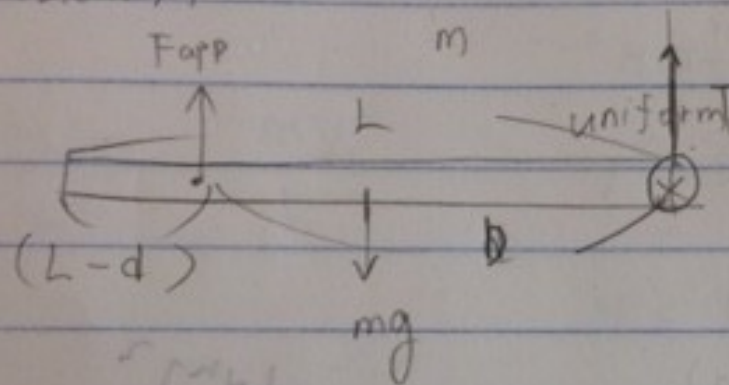 Fapp m
L uniform T
(L-d) D
mg